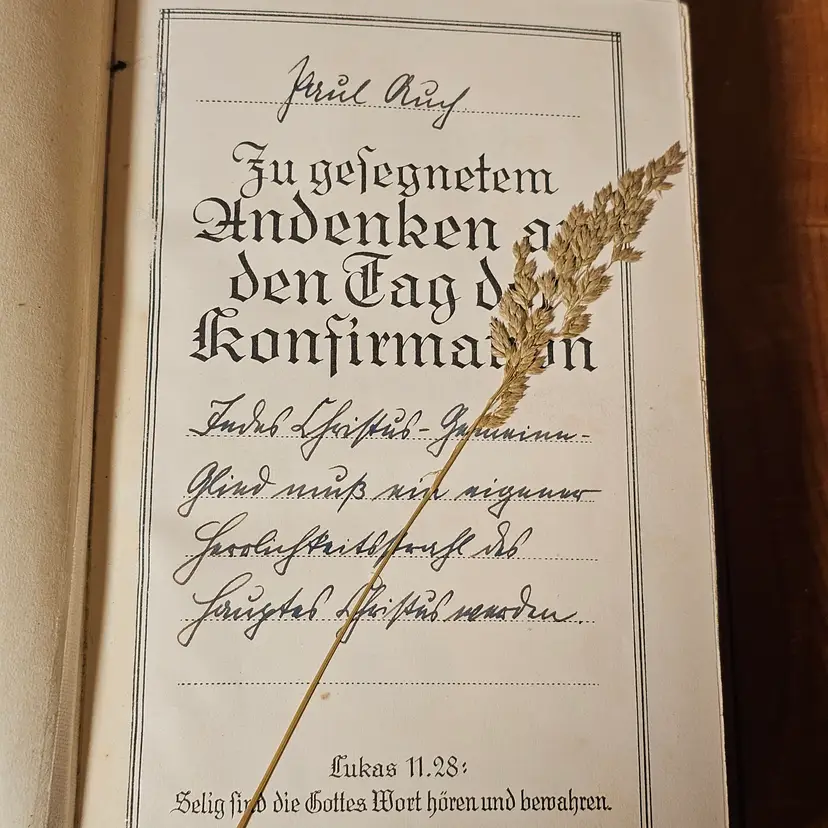 Paul Auch
Zu gesegnetem
Andenken an
den Tag der
Konfirmation
Jedes Christus-Gemeinn-
Glied muß ein eigener
Herrlichkeitsstrahl des
Hauptes Christus werden.
Lukas 11.28:
Selig sind die Gottes Wort hören und bewahren.